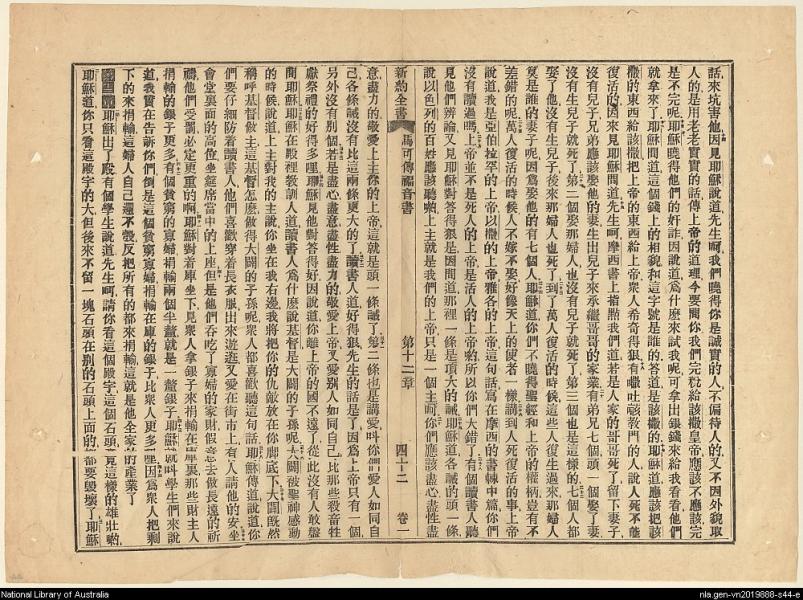 話來坑害他因見耶穌說道先生呵我們曉得你是誠實的人不偏待人的又不因外貌取
人的是用老老實實的話傳上帝的道理今要問你我們完稅給該撒皇帝應該不應該完
是不完呢耶穌曉得他們的奸詐因說道爲什麽來試我呢可拿出銀錢來給我看看他們
就拿來了耶穌問道這個錢上的相貌和這字號是誰的答道是該撒的耶穌道應該把該
撒的東西給該撒把上帝的東西給上帝衆人希奇得狠有㘔吐㖠教門的人說人死不能
復活的因來見耶穌問道先生呵摩西書上指點我們道若是人家的哥哥死了留下妻子
沒有兒子兄弟應該娶他的妻生出兒子來承繼哥哥的家業有弟兄七個頭一個娶了妻
沒有兒子就死了第二個娶那婦人也沒有兒子就死了第三個也是這樣的七個人都
娶了他沒有生兒子後來那婦人也死了到了萬人復活的時候這些人復生過來那婦人
算是誰的妻子呢因爲娶他的有七個人耶穌道你們不曉得聖經和上帝的權柄豈有不
差錯的呢萬人復活的時候人不嫁不娶好像天上的使者一樣講到人死復活的事上帝
說道我是亞伯拉罕的上帝以撒的上帝雅各的上帝這句話寫在摩西的書棘中篇你們
沒有讀過嗎上帝並不是死人的上帝是活人的上帝喲所以你們大錯了有個讀書人聽
見他們辨論又見耶穌對答得狠是因問道那裡一條是頂大的誡耶穌道各誡的頭一條
說以色列的百姓應該聽喲上主就是我們的上帝只是一個主呵你們應該盡心盡性盡
新約全書 馬可傳福音書 第十二章 四十二 卷一
意盡力的敬愛上主你的上帝這就是頭一條誡了第二條也是講愛呌你們愛人如同自
己各條誡沒有比這兩條更大的了讀書人道好得狠先生的話是了因爲上帝只有一個
另外沒有別個若是盡心盡意盡性盡力的敬愛上帝又愛別人如同自己比那些殺畜牲
獻祭禮的好得多哩耶穌見他對答得好因說道你離上帝的國不遠了從此沒有人敢盤
問耶穌耶穌在殿裡教訓人道讀書人爲什麽說基督是大闢的子孫呢大闢被聖神感動
的時候說道上主對我的主說你坐在我右邊我將把你的仇敵放在你脚底下大闢既然
稱呼基督做主這基督怎麽做得大闢的子孫呢衆人都喜歡聽這句話耶穌傳道說道你
們要仔細防着讀書人他們喜歡穿着長衣服出來遊逛又愛在街市上有人請他的安坐
會堂裏面的高位坐筵席當中的上座但是他們吞吃了寡婦的家財假意去做長遠的祈
禱他們受罰必定更重的啊耶穌對着庫坐下見衆人拿銀子來捐輸在庫裏那些財主人
捐輸的銀子更多有個貧窮的寡婦捐輸兩個半釐就是一釐銀子耶穌就呌學生們來說
道我實在告訴你們倒是這個貧窮寡婦捐輸在庫的銀子比衆人更多哩因爲衆人把剩
下的來捐輸這婦人自己還不彀反把所有的都來捐輸這就是他全家的產業了
耶穌出了殿有個學生說道先生呵請你看這個殿宇這個石頭竟這樣的雄壯喲
耶穌道你只看這殿宇的大但後來不留一塊石頭在別的石頭上面的都要毀壞了耶穌
National Library of Australia
nla.gen-vn2019888-s44-e